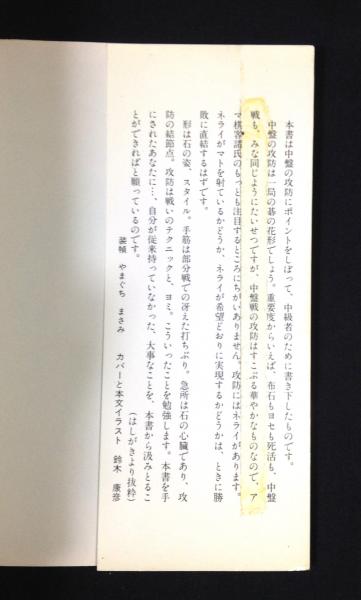 本書は中盤の攻防にポイントをしぼって、中級者のために書き下したものです。
中盤の攻防は一局の碁の花形でしょう。重要度からいえば、布石もヨセも死活も、中盤
戦も、みな同じようにたいせつですが、中盤戦の攻防はすこぶる華やかなものなので、ア
マ棋客諸氏のもっとも注目するところにちがいありません。攻防にはネライがあります。
ネライがマトを射ているかどうか、ネライが希望どおりに実現するかどうかは、ときに勝
敗に直結するはずです。
形は石の姿、スタイル。手筋は部分戦での冴えた打ちぶり。急所は石の心臓であり、攻
防の結節点。攻防は戦いのテクニックと、ヨミ。こういったことを勉強します。本書を手
にされたあなたに…、自分が従来持っていなかった、大事なことを、本書から汲みとるこ
とができればと願っているのです。
(はしがきより抜粋)
装幀 やまぐち まさみ カバーと本文イラスト 鈴木 康彦